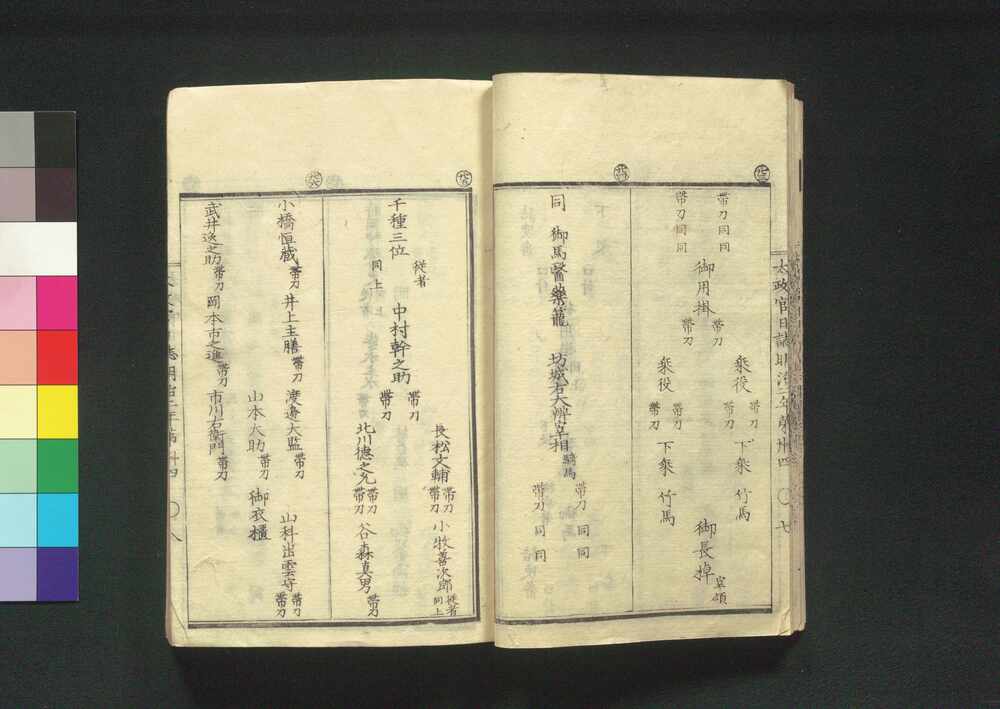 帯刀 同 同
帯刀 同 同
御用掛
帯刀
帯刀
乗役 帯刀 帯刀 下乗 竹馬
御長掉 宰領
乗役 帯刀 帯刀 下乗 竹馬
同 御馬醫藥籠 坊城右大辨宰相 騎馬
帯刀 同 同
帯刀 同 同
太政官日誌明治二年第卅四 〇七
千種三位 従者 同上
中村幹之助 帯刀 帯刀
長松文輔 帯刀 帯刀 小牧善次郎 従者 同上
北川徳之允 帯刀 帯刀 谷森真男 帯刀
小橋恒蔵 帯刀 井上主膳 帯刀 渡邉大監 帯刀 山科出雲守 帯刀 帯刀
山本大助 帯刀 御衣櫃
武井逸之助 帯刀 岡本市之進 帯刀 市川右衛門 帯刀